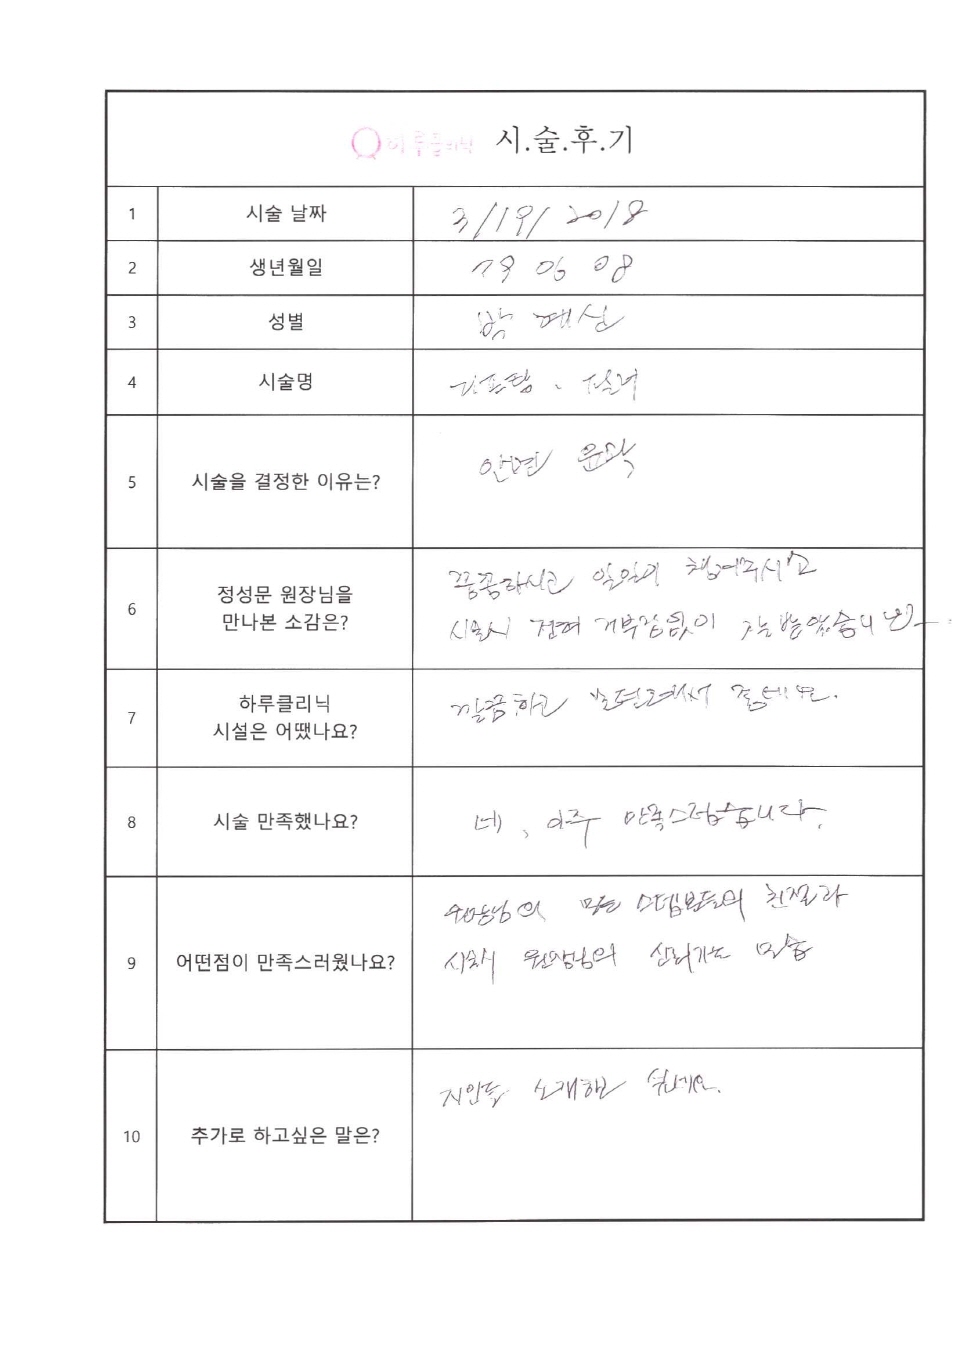 하루클리닉 시.술.후.기
1 시술 날짜 3/19/2018
2 생년월일 79 06 08
3 성별 박
4 시술명
5 시술을 결정한 이유는? 안면 윤곽
6 정성문 원장님을 만나본 소감은?
꼼꼼하시고 일일이 챙겨주시고
시술시 전혀 거부감없이 받았습니다
7 하루클리닉 시설은 어땠나요? 깔끔하고
8 시술 만족했나요? 네, 아주 만족스럽습니다.
9 어떤점이 만족스러웠나요?
원장님의 모든 스텝분들의 친절과
원장님의 신뢰가는 모습
10 추가로 하고싶은 말은? 지인들 소개해 줄게요.